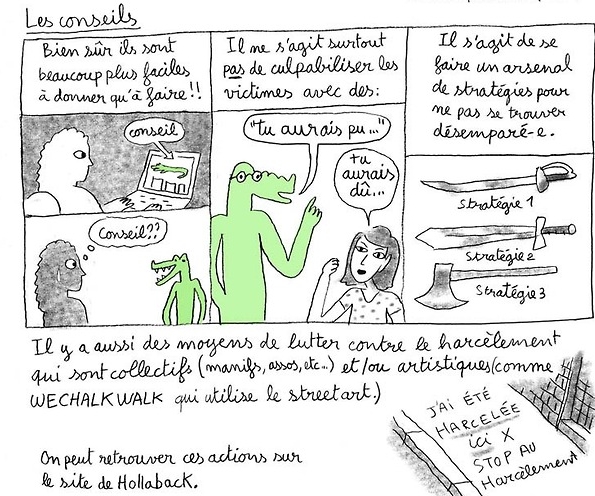 Les conseils
Bien sûr ils sont
beaucoup plus faciles
à donner qu'à faire!!
conseil
Conseil??
Il ne s'agit surtout
pas de culpabiliser les
victimes avec des:
"tu aurais pu..."
tu
aurais
dû...
Il s'agit de se
faire un arsenal
de stratégies pour
ne pas se trouver
désemparé-e.
Stratégie 1
Stratégie 2
Stratégie 3
Il y a aussi des moyens de lutter contre le harcèlement
qui sont collectifs (manifs, assos, etc...) et/ou artistiques (comme
WECHALKWALK qui utilise le streetart.)
J'AI ÉTÉ
HARCELÉE
ici X
STOP AU
Harcèlement
On peut retrouver ces actions sur
le site de Hollaback.